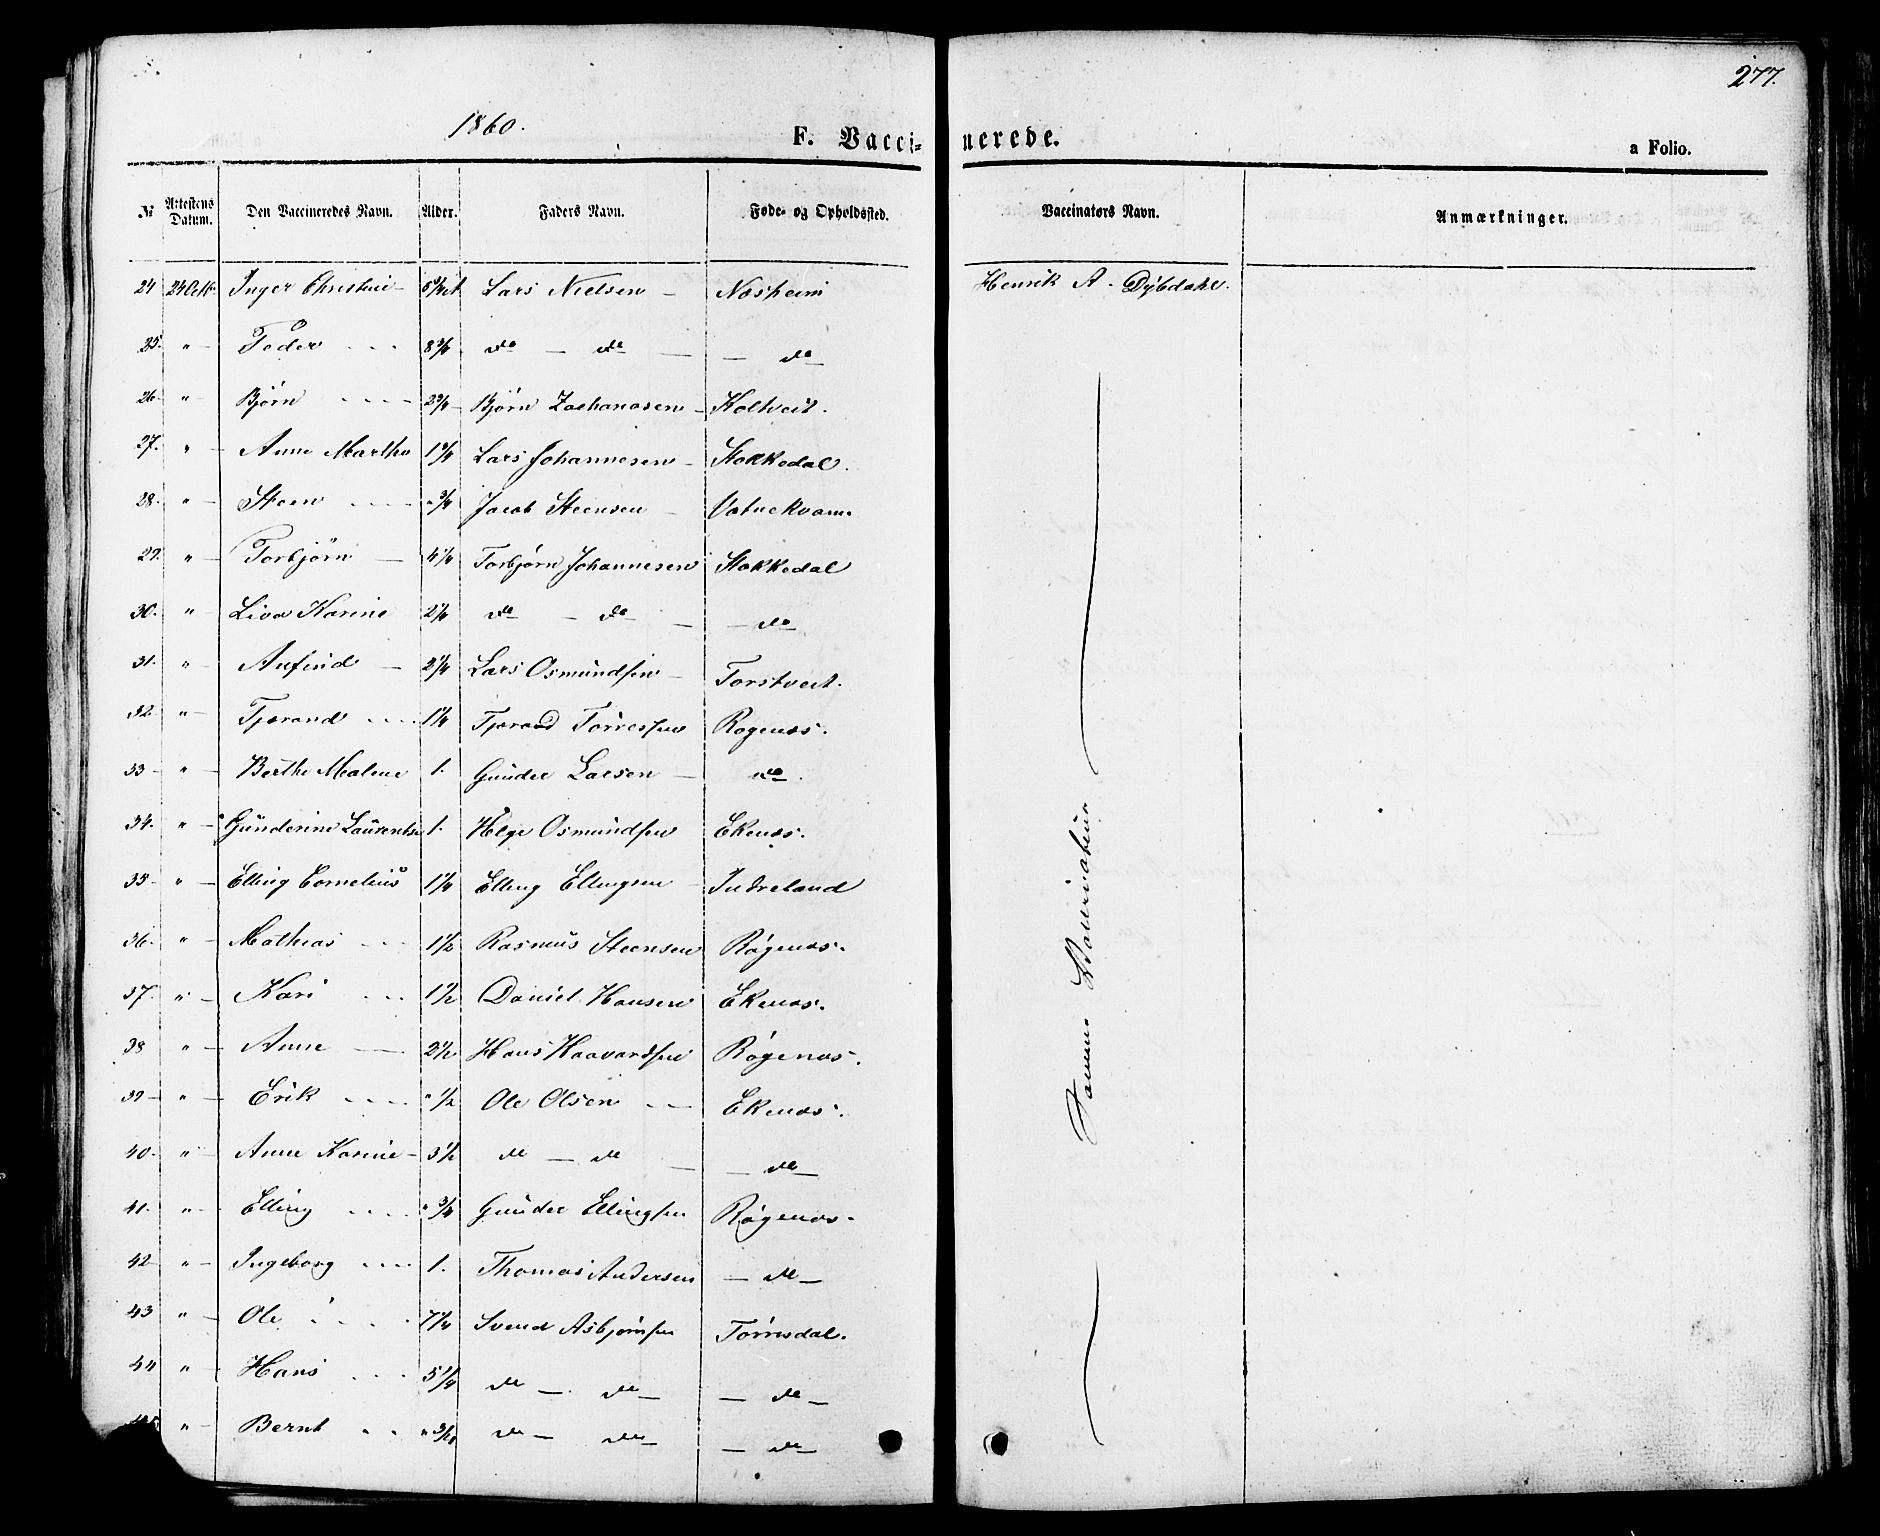 277.
1860.
F. Vaccinerede.
a Folio.
№ Attestens Datum. Den Vaccineredes Navn. Alder. Faders Navn. Føde- og Opholdssted. Vaccinators Navn. Anmærkninger.
24 24 Octb. Inger Christine Lars Nielsen Henrik A. Dybdahl.
25. " Peder 8 3/4 do do do
26. " Bjørn 2 3/4 Bjørn Zachariasen Holtveit.
27. " Anne Marthe 1 3/4 Lars Johannesen Stokkedal.
28. " Steen " 3/4 Jacob Steensen Vatnekvam
29. " Torbjørn 4 1/4 Torbjørn Johannesen Stokkedal
30. " Liva Karine 2 1/4 do do do
31. " Anfind 2 1/4 Lars Osmundsen Torstveit.
32 " Tjerand 1 1/4 Tjerand Torresen Røgenæs.
33 " Berthe Malene 1. Gunder Larsen do.
34. " Gunderine Laurentse 1. Helge Osmundsen Ekenæs.
35 " Elling Cornelius 1 1/4 Elling Ellingsen Indreland
36. " Mathias 1 1/2 Rasmus Steensen Røgenæs.
37. " Kari 1 1/2 Daniel Hansen Ekenæs.
38 " Anne 2 1/2 Hans Haavardsen Røgenæs.
39 " Erik " 1/2 Ole Olsen Ekenæs.
40. " Anne Karine 3 1/2 do do do
41. " Elling " 3/4 Gunder Ellingsen Røgenæs.
42 " Ingeborg 1. Thomas Andersen do
43 " Ole 7 1/4 Svend Asbjørnsen Torrisdal.
44 " Hans 5 1/4 do do do
45. " Bernt " do do do
Samme Vaccinateur